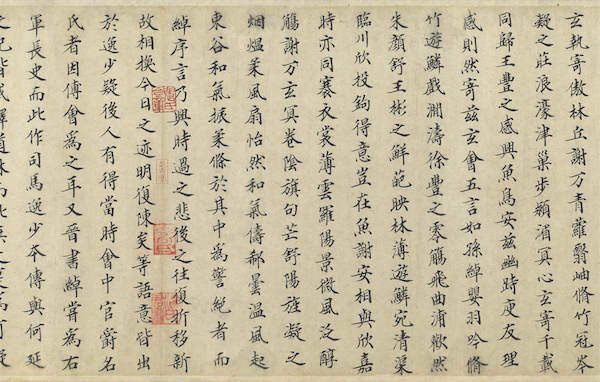 玄執寄傲林丘謝万青蘿翳岫脩竹冠岑
凝之莊浪濠津巢步潁湄真心玄寄千載
同歸王豐之感興魚鳥安茲幽時庾友理
感則然寄茲玄會五言如孫綽嚶羽吟脩
竹遊鱗戲瀾濤徐豐之零觴飛曲浦歡然
朱顏舒王彬之鮮葩映林薄遊鱗宛清渠
臨川欣投鈎得意豈在魚謝安相與欣嘉
時亦同褰衣裳薄雲羅陽景微風泛醇
觴謝万玄冥卷陰旗句芒舒陽旌凝之
烟熅柔風扇怡然和氣儔郗曇温風起
東谷和氣振柔條於其中為警絶者而
綽序言乃興時過之悲後之往復折移新
故相換今日之迹明復陳矣等語意皆出
於逸少疑後人有得當時會中官爵名
氏者因傅會為之耳又晉書綽嘗為右
軍長史而此作司馬逸少本傳與何延